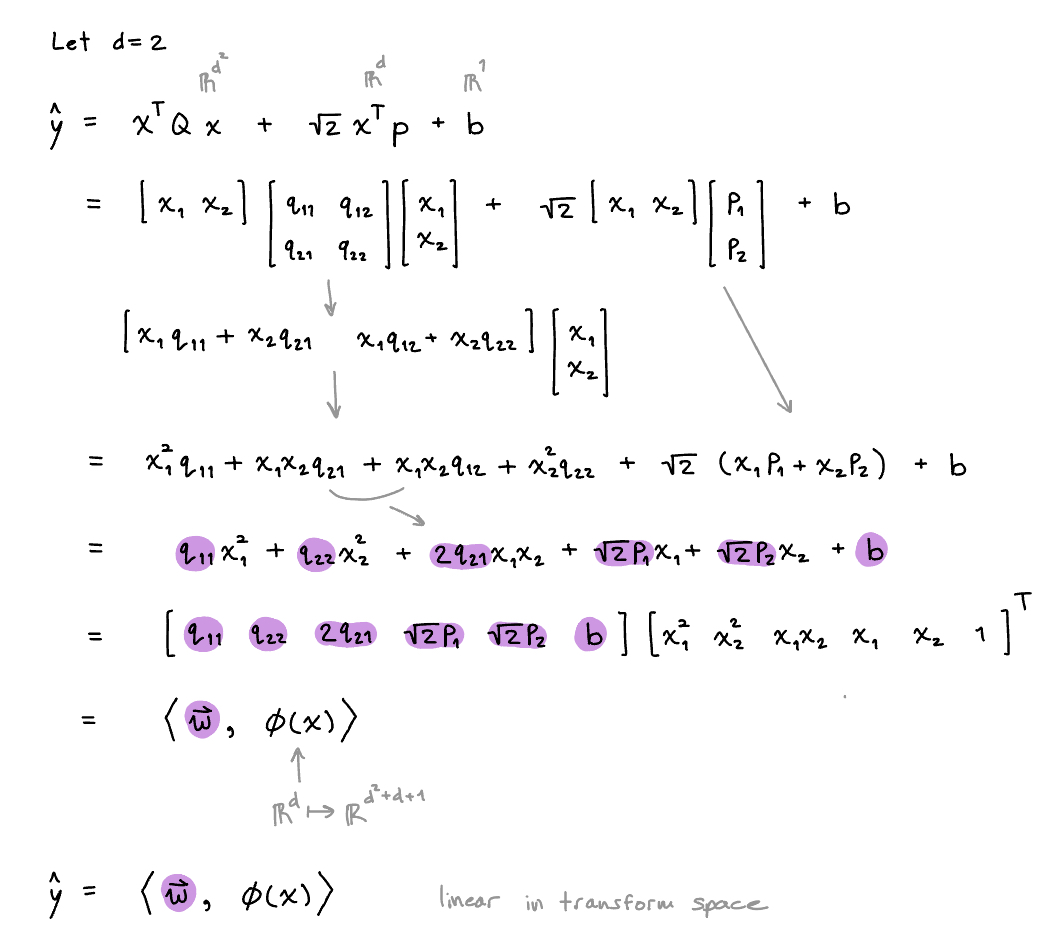 Let d=2
ℝ^{d²} ℝ^d ℝ^1
ŷ = x^T Q x + √2 x^T p + b
= [x₁ x₂] [q₁₁ q₁₂; q₂₁ q₂₂] [x₁; x₂] + √2 [x₁ x₂] [p₁; p₂] + b
[x₁q₁₁ + x₂q₂₁ x₁q₁₂ + x₂q₂₂] [x₁; x₂]
= x₁²q₁₁ + x₁x₂q₂₁ + x₁x₂q₁₂ + x₂²q₂₂ + √2 (x₁p₁ + x₂p₂) + b
= q₁₁x₁² + q₂₂x₂² + 2q₂₁x₁x₂ + √2p₁x₁ + √2p₂x₂ + b
= [q₁₁ q₂₂ 2q₂₁ √2p₁ √2p₂ b] [x₁² x₂² x₁x₂ x₁ x₂ 1]^T
= ⟨w⃗, φ(x)⟩
ℝ^d ↦ ℝ^{d²+d+1}
ŷ = ⟨w⃗, φ(x)⟩ linear in transform space